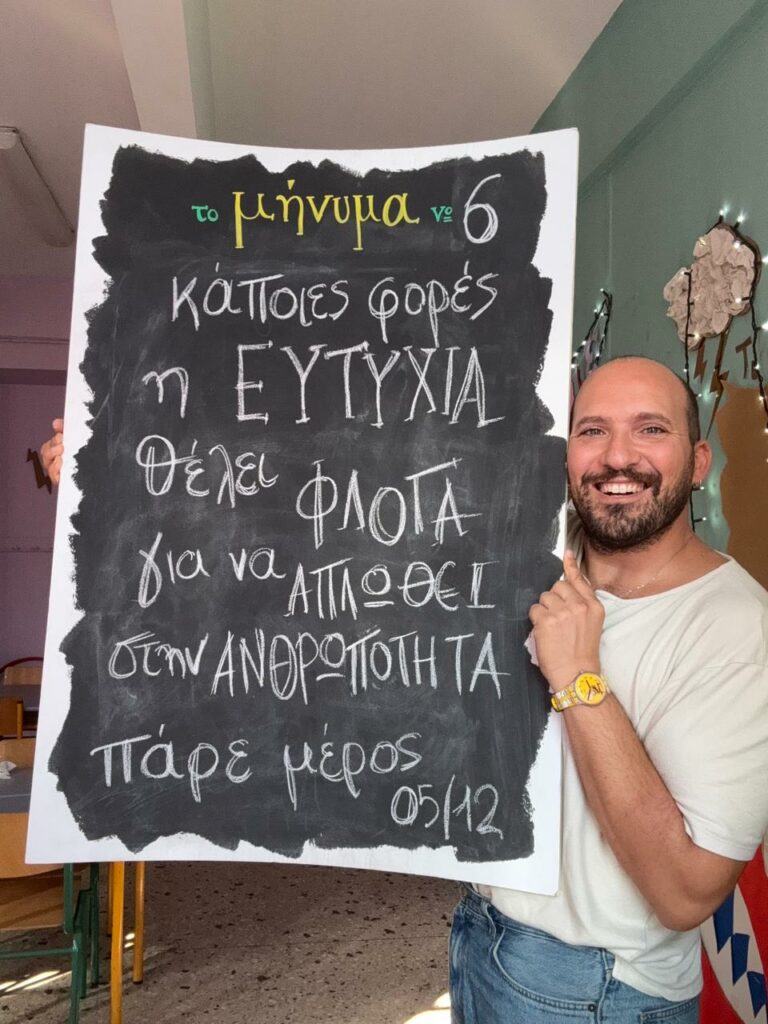 το μήνυμα νο 6
κάποιες φορές
η ΕΥΤΥΧΙΑ
θέλει ΦΛΟΓΑ
για να ΑΠΛΩΘΕΙ
στην ΑΝΘΡΩΠΟΤΗΤΑ
πάρε μέρος
05/12